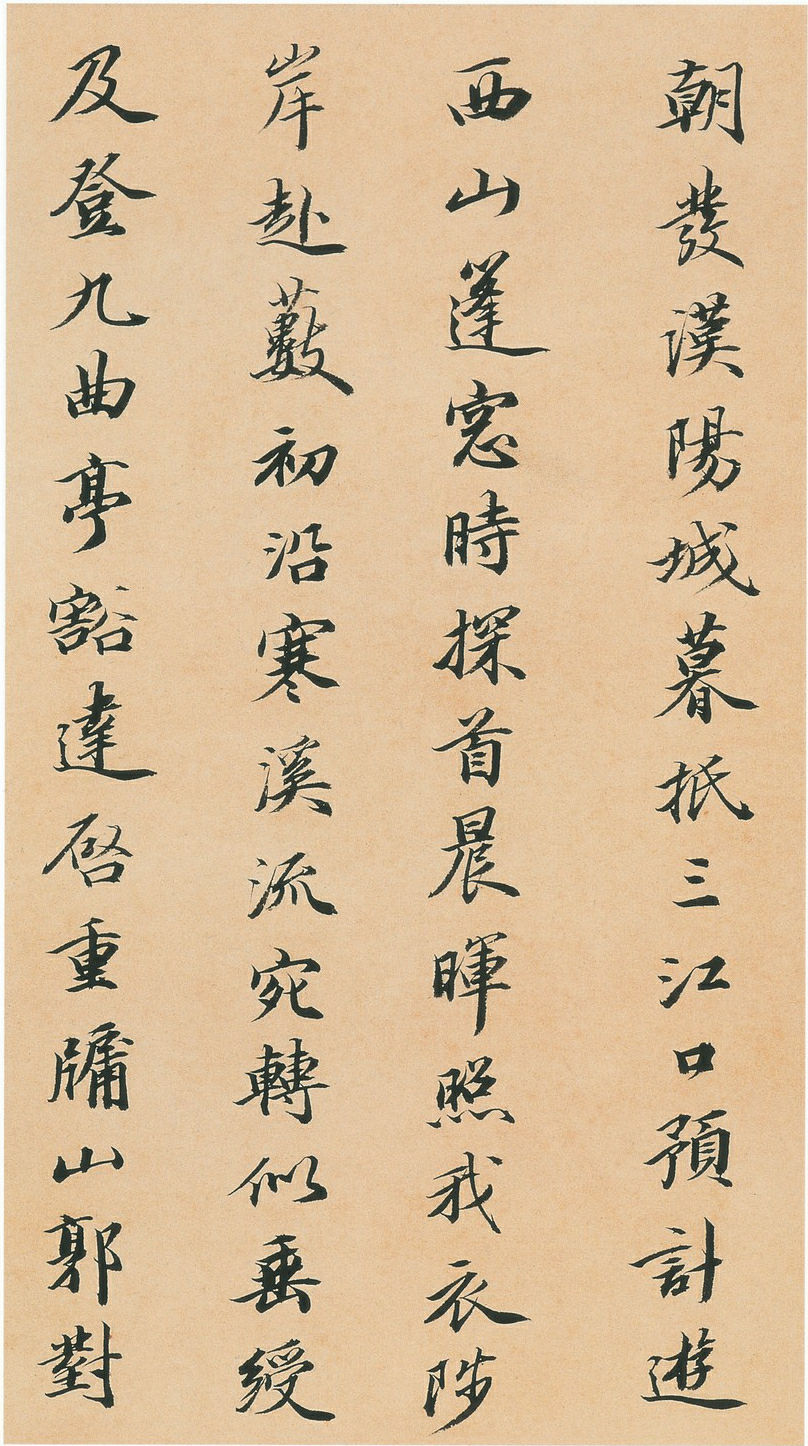 朝發漢陽城暮抵三江口預計遊
西山篷窓時探首晨暉照我衣陟
岸赴藪初沿寒溪流宛轉似垂綬
及登九曲亭豁達啓重牖山郭對